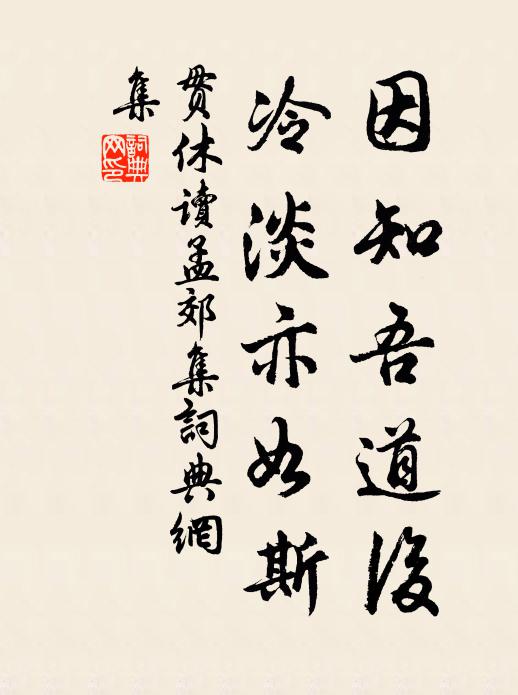 因知吾道後
冷淡亦如斯
貫休讀孟郊集詞典網
集
詞典網印